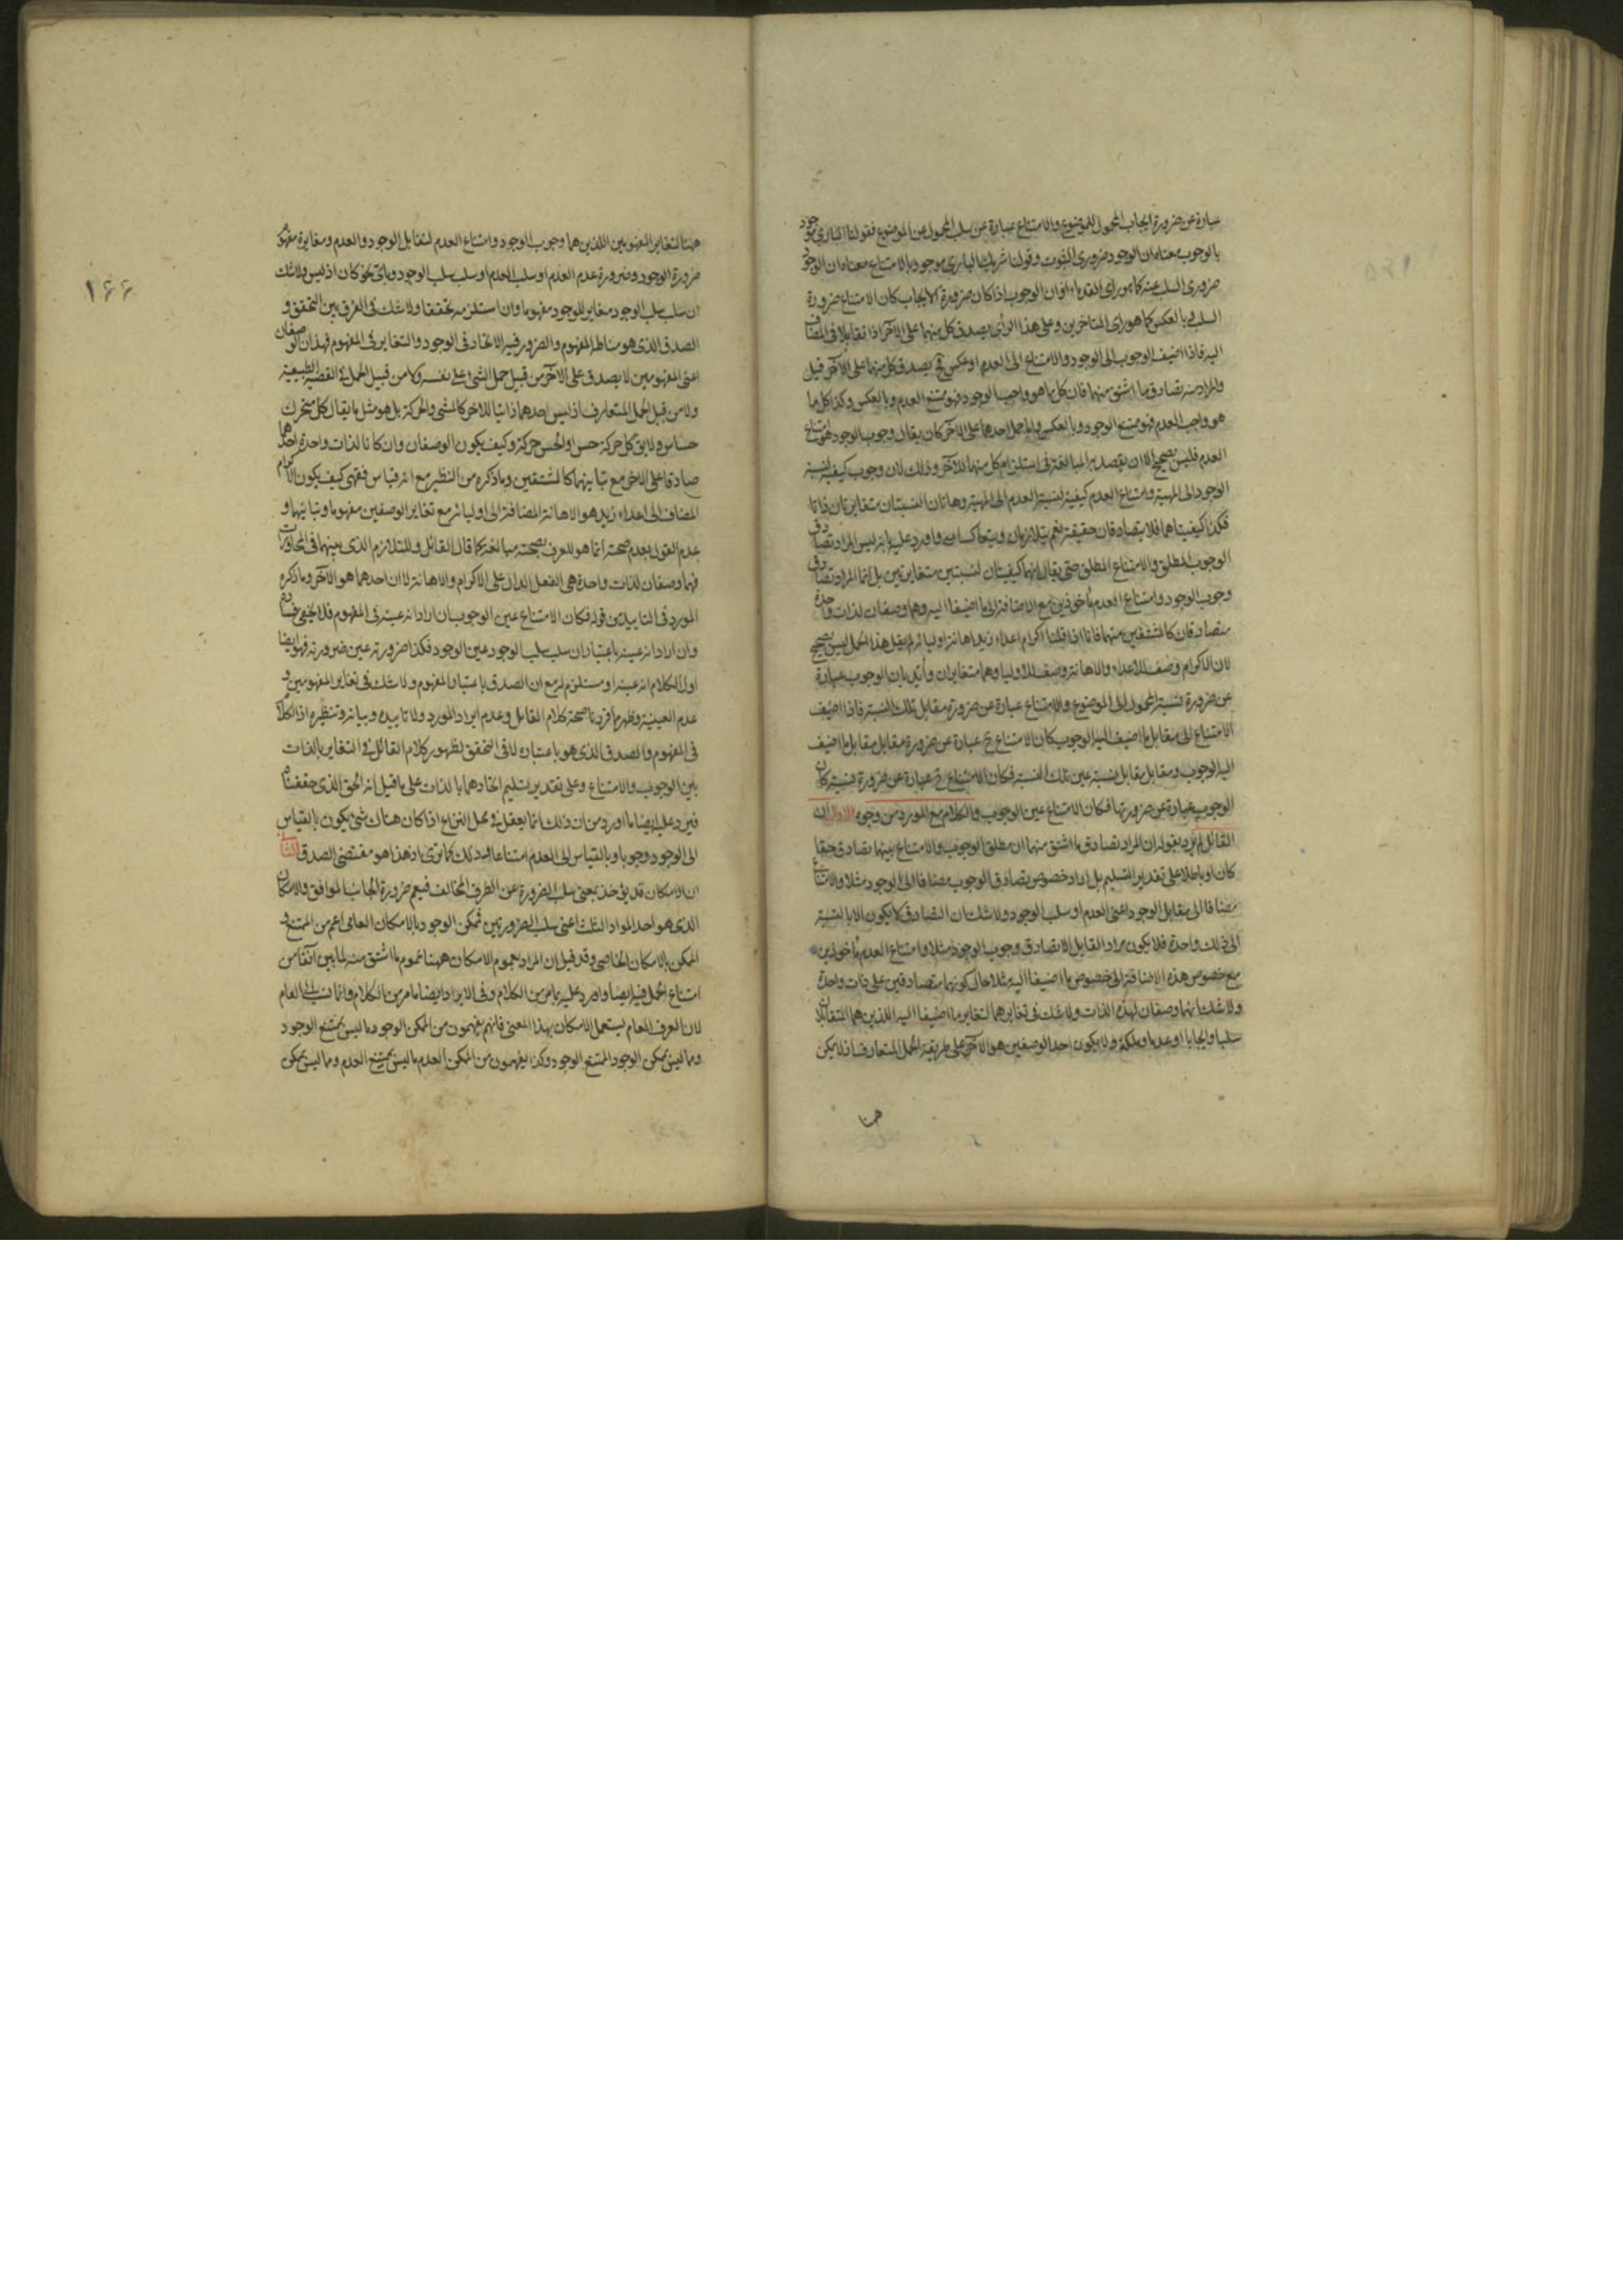 عبارة عن ضرورة ايجاب المحمول للموضوع والامتناع عبارة عن سلب المحمول عن الموضوع فقولنا الباري موجود
بالوجوب معناه ان الوجود ضروري الثبوت وقولنا شريك الباري موجود بالامتناع معناه ان الوجود
ضروري السلب عنه كما هو راى القدماء او ان الوجوب اذا كان ضرورة الايجاب كان الامتناع ضرورة
السلب وبالعكس كما هو راى المتاخرين وعلى هذا الراى يصدق كل منهما على الآخر اذا تقابلا في المضاف
اليه فاذا اضيف الوجوب الى الوجود والامتناع الى العدم او عكس يصدق كل منهما على الآخر قيل
والمراد منه تصادق ما اشتق منهما فان كل ما هو واجب الوجود فهو ممتنع العدم وبالعكس وكذا كل ما
هو واجب العدم فهو ممتنع الوجود وبالعكس واما حمل احدهما على الآخر كان يقال وجوب الوجود هو امتناع
العدم فليس بصحيح الا ان يقصد به المبالغة في استلزام كل منهما للآخر وذلك لان وجوب كيفية لنسبة
الوجود الى المهية وامتناع العدم كيفية لنسبة العدم الى المهية وهاتان النسبتان متغايرتان ذاتا
فكذا كيفيتاهما فلا يتصادقان حقيقة نعم يتلازمان ويتعاكسان واورد عليه بانه ليس المراد تصادق
الوجوب المطلق والامتناع المطلق حتى يقال انهما كيفيتان لنسبتين متغايرتين بل انما المراد تصادق
وجوب الوجود وامتناع العدم ماخوذين مع الاضافة الى ما اضيفا اليه وهما وصفان لذات واحدة
متصادقان كالمشتقين منهما فانا اذا قلنا اكرام اعداء زيد اهانة اوليائه لم يقل هذا الحمل ليس بصحيح
لان الاكرام وصف للاعداء والاهانة وصف للاوليا وهما متغايران وايد بان الوجوب عبارة
عن ضرورة نسبة المحمول الى الموضوع والامتناع عبارة عن ضرورة مقابل تلك النسبة فاذا اضيف
الامتناع الى مقابل ما اضيف اليه الوجوب كان الامتناع ح عبارة عن ضرورة مقابل مقابل ما اضيف
اليه الوجوب ومقابل مقابل نسبة عين تلك النسبة فكان الامتناع ح عبارة عن ضرورة نسبة كان
الوجوب عبارة عن ضرورتها فكان الامتناع عين الوجوب والكلام مع المورد من وجوه الاول ان
القائل لم يرد بقوله ان المراد تصادق ما اشتق منهما ان مطلق الوجوب والامتناع بينهما تصادق حقا
كان او باطلا على تقدير التسليم بل اراد خصوص تصادق الوجوب مضافا الى الوجود مثلا والامتناع
مضافا الى مقابل الوجود اعنى العدم او سلب الوجود ولا شك ان التصادق لا يكون الا بالنسبة
الى ذلك واحدة فلا يكون مراد القايل الا تصادق وجوب الوجود مثلا وامتناع العدم ماخوذين
مع خصوص هذه الاضافة الى خصوص ما اضيفا اليه مثلا حال كونهما متصادقين على ذات واحدة
ولا شك انهما وصفان لهذه الذات ولا شك في تغايرهما لتغاير ما اضيفا اليه اللذين هما المتقابلان
سلبا وايجابا او عدما وملكة فلا يكون احد الوصفين هو الآخر على طريقة الحمل المتعارف اذ لا يمكن
ههنا
١٦٦
ههنا لتغاير المفهومين اللذين هما وجوب الوجود وامتناع العدم لتقابل الوجود والعدم ومغايرة مفهوم
ضرورة الوجود وضرورة عدم العدم او سلب العدم او سلب سلب الوجود وباى نحو كان اذ ليس ولا شك
ان سلب سلب الوجود مغاير للوجود مفهوما وان استلزمه تحققا ولا شك في الفرق بين التحقق و
الصدق الذى هو مناط المفهوم والضرور فيه الاتحاد في الوجود والتغاير في المفهوم فهذان الوصفان
اعنى المفهومين لا يصدق على الآخر من قبيل حمل الشئ على نفسه ولا من قبيل الحمل في القضية الطبيعية
ولا من قبيل الحمل المتعارف اذ ليس احدهما ذاتيا للاخر كالمشى والحركة بل هو مثل ما يقال كل متحرك
حساس ولا يق كل حركة حس او الحس حركة وكيف يكون الوصفان وان كانا لذات واحدة احدهما
صادقا على الاخر مع تباينهما كالمشتقين وما ذكره من النظير مع انه قياس فقهى كيف يكون الاكرام
المضاف الى اعداء زيد هو الاهانة المضافة الى اوليائه مع تغاير الوصفين مفهوما وتباينهما و
عدم القول بعدم صحته انما هو للعرف بصحته مبالغة كما قال القائل وللتلازم الذى بينهما في المحاورات
فهما وصفان لذات واحدة هى الفعل الدال على الاكرام والاهانة لا ان احدهما هو الآخر وما ذكره
المورد في التاييد من قوله فكان الامتناع عين الوجوب ان اراد انه عينه في المفهوم فلا يخفى فساده
وان اراد انه عينه باعتبار ان سلب سلب الوجود عين الوجود فكذا ضرورته عين ضرورته فهو ايضا
اول الكلام انه عينه او مستلزم له مع ان الصدق باعتبار المفهوم ولا شك في تغاير المفهومين و
عدم العينية وظهر بما قررنا صحة كلام القائل وعدم ايراد المورد ولا تاييده وبيانه وتنظيره اذ الكلام
في المفهوم والصدق الذى هو باعتباره لا في التحقق لظهور كلام القائل في التغاير بالذات
بين الوجوب والامتناع وعلى تقدير تسليم اتحادهما بالذات على ما قيل انه الحق الذى حققناه
فيرد عليه ايضا ما اورد من ان ذلك انما يعقل في محل النزاع اذا كان هناك شئ يكون بالقياس
الى الوجود وجوبا وبالقياس الى العدم امتناعا ذلك كما ترى اذ هذا هو مقتضى الصدق
ان الامكان قد يؤخذ بمعنى سلب الضرورة عن الطرف المخالف فيعم ضرورة الجانب الموافق والامكان
الذى هو احد المواد الثلث اعنى سلب الضرورتين فممكن الوجود بالامكان العامى اعم من الممتنع و
الممكن بالامكان الخاصى وقد قيل ان المراد بعموم الامكان ههنا عموم ما اشتق منه لما بين آنفا من
امتناع الحمل فيه ايضا واورد عليه بما مر من الكلام وفى الايراد ايضا ما مر من الكلام وانما نسب الى العام
لان العرف العام يستعمل الامكان بهذا المعنى فانهم يفهمون من الممكن الوجود ما ليس بممتنع الوجود
وما ليس بممكن الوجود الممتنع الوجود وكذا يفهمون من الممكن العدم ما ليس بممتنع العدم وما ليس بممكن